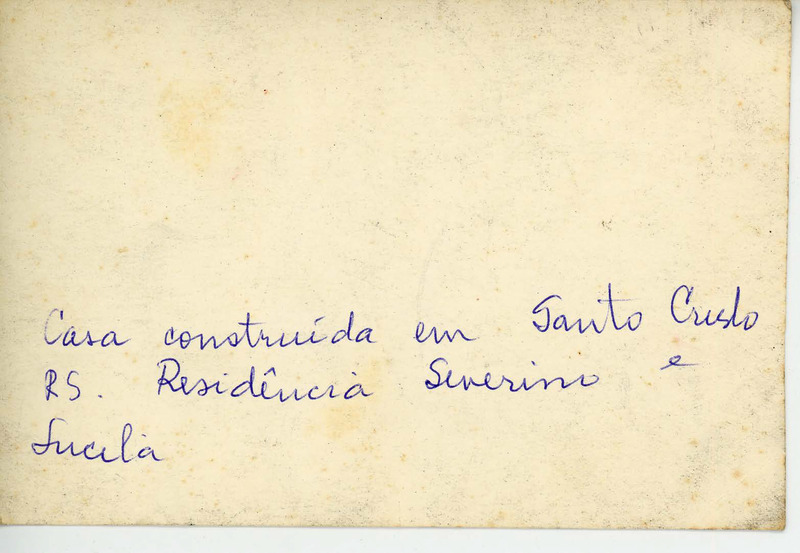 Casa construída em Santo Cristo
RS. Residência Severino e
Lucila